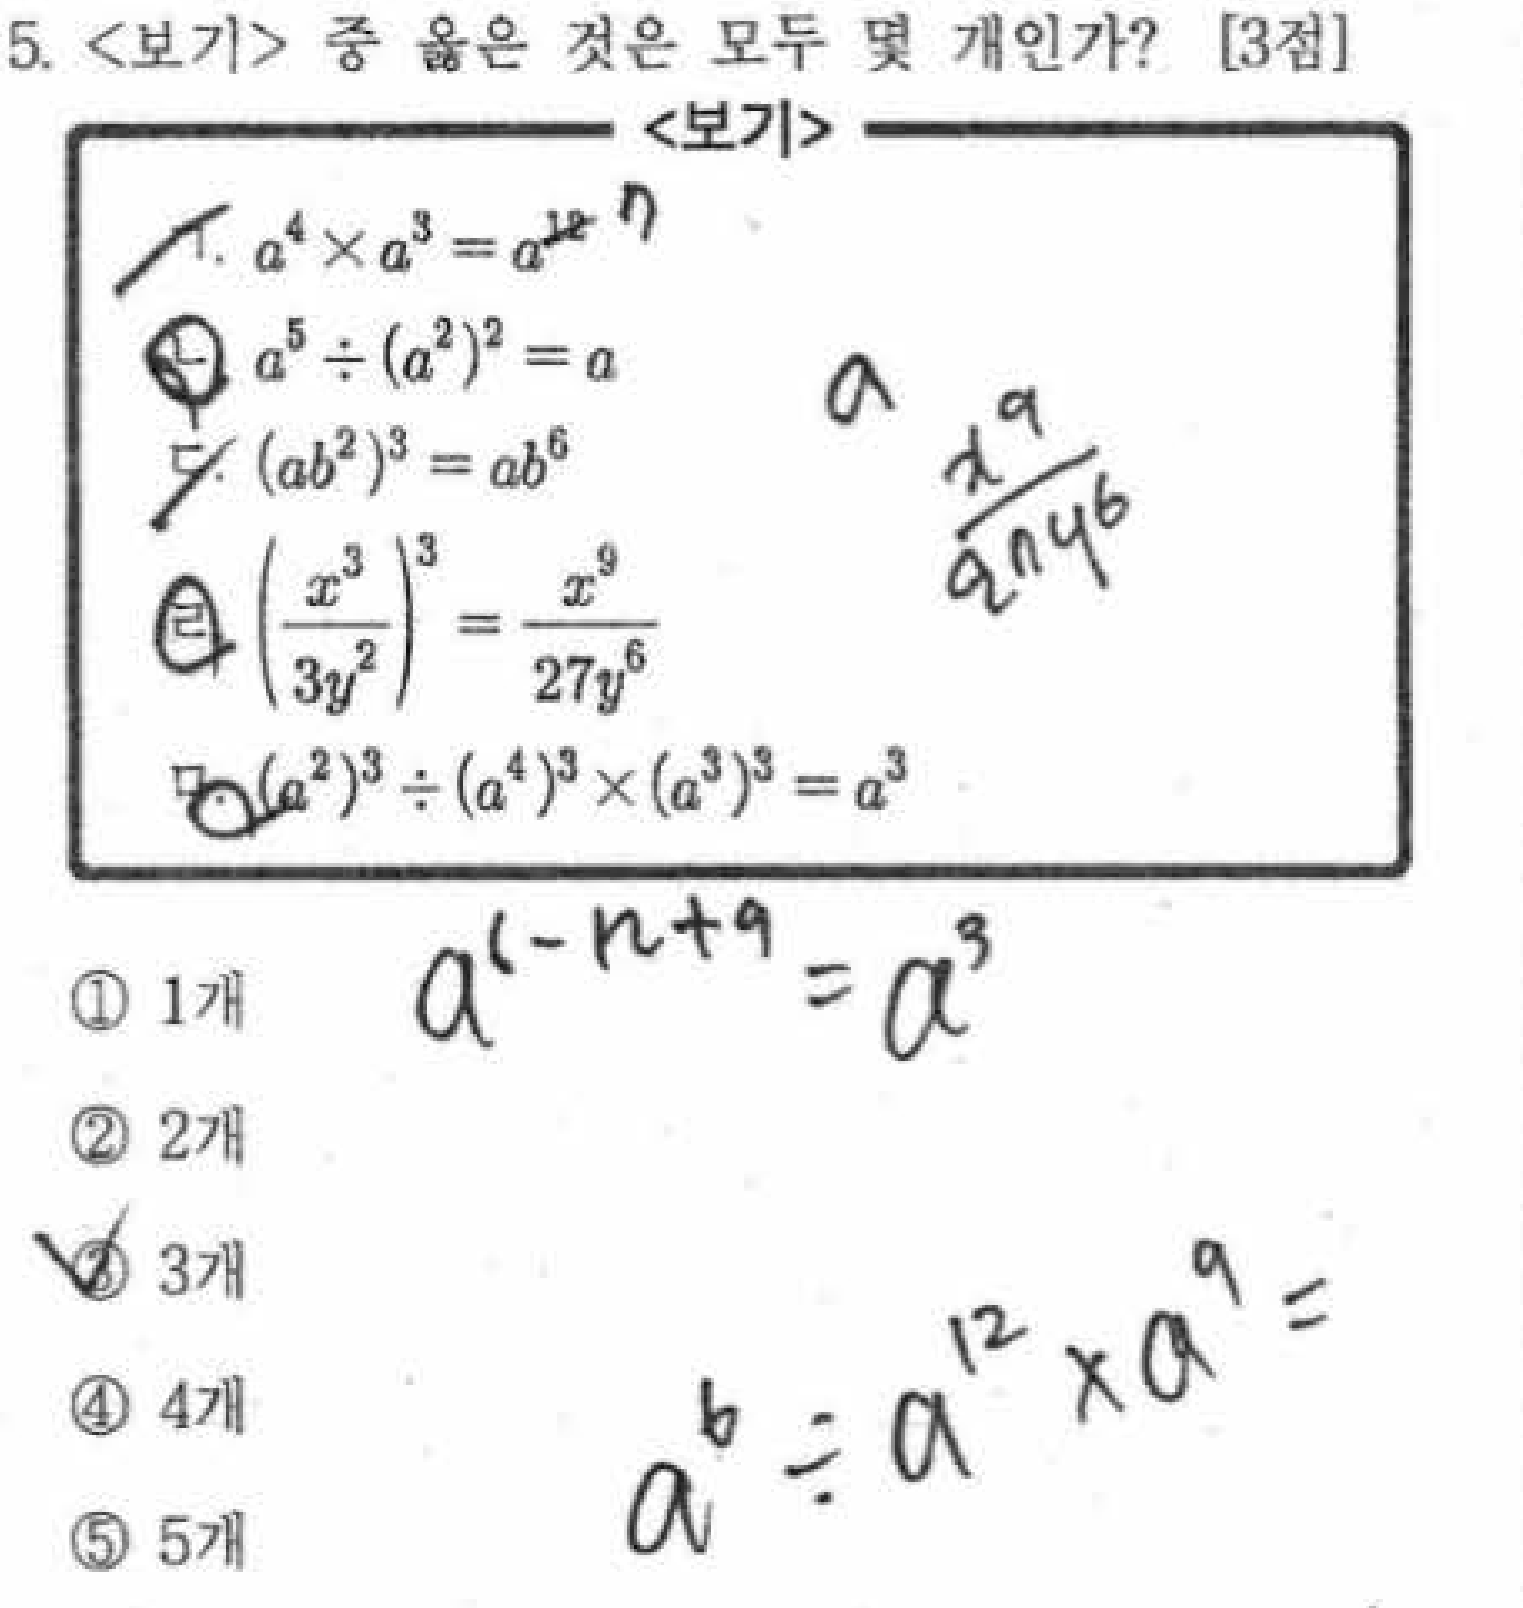 5. <보기> 중 옳은 것은 모두 몇 개인가? [3점]
<보기>
ㄱ. a⁴ × a³ = a¹² 7
ㄴ. a⁵ ÷ (a²)² = a
ㄷ. (ab²)³ = ab⁶
ㄹ. (x³/3y²)³ = x⁹/27y⁶
ㅁ. (a²)³ ÷ (a⁴)³ × (a³)³ = a³
a
x⁹/27y⁶
a⁶⁻¹²⁺⁹ = a³
① 1개
② 2개
③ 3개
④ 4개
⑤ 5개
a⁶ ÷ a¹² × a⁹ =